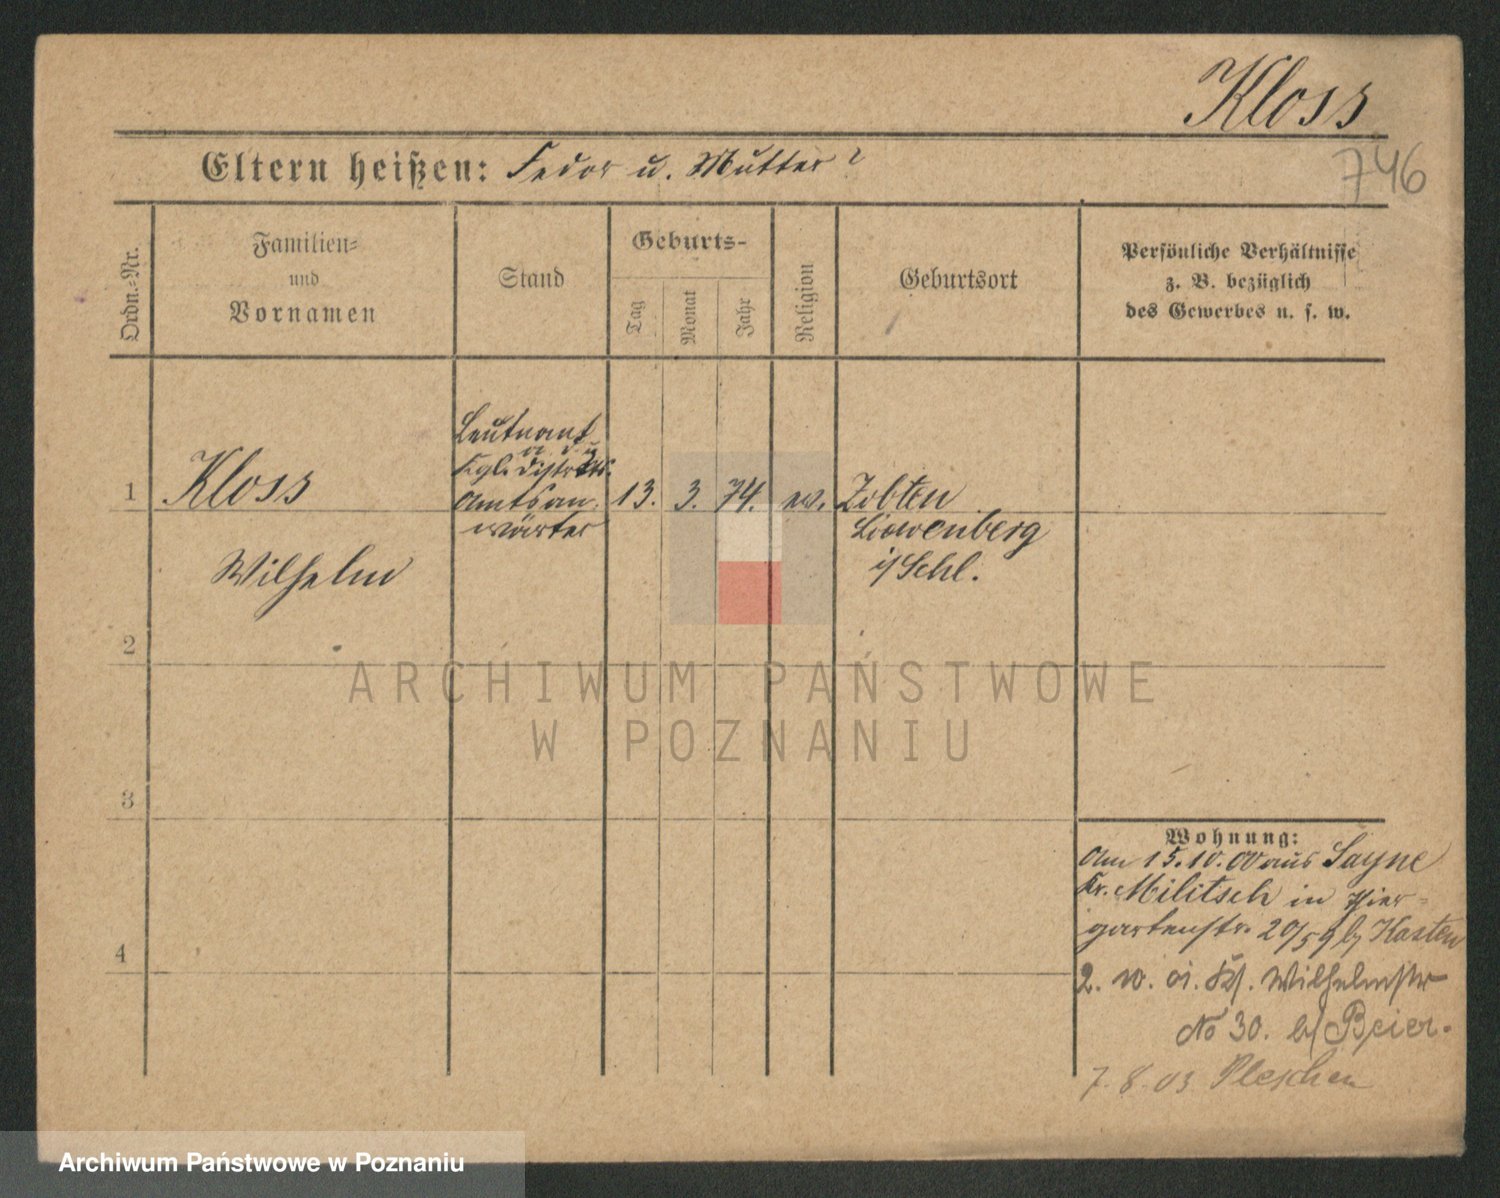 Kloss
Eltern heißen: Fedor u. Mutter?
746
Ordn.-Nr.
Familien-
und
Vornamen
Stand
Geburts-
Tag
Monat
Jahr
Religion
Geburtsort
Persönliche Verhältnisse
z. B. bezüglich
des Gewerbes u. s. w.
1
Kloss
Wilhelm
Leutnant
a. d. u
Kgl. Distrikts
Amtsan-
wärter
13. 3. 74. ev.
Zobten
Loewenberg
i/Schl.
2
3
4
Wohnung:
Am 15.10.00 aus Sayne
Kr. Militsch in Thier-
gartenstr. 20/59 b/ Kasten
2. Wilhelmstr
No 30. b/ Beier.
7.8.03 Pleschen
ARCHIWUM PAŃSTWOWE
W POZNANIU
Archiwum Państwowe w Poznaniu